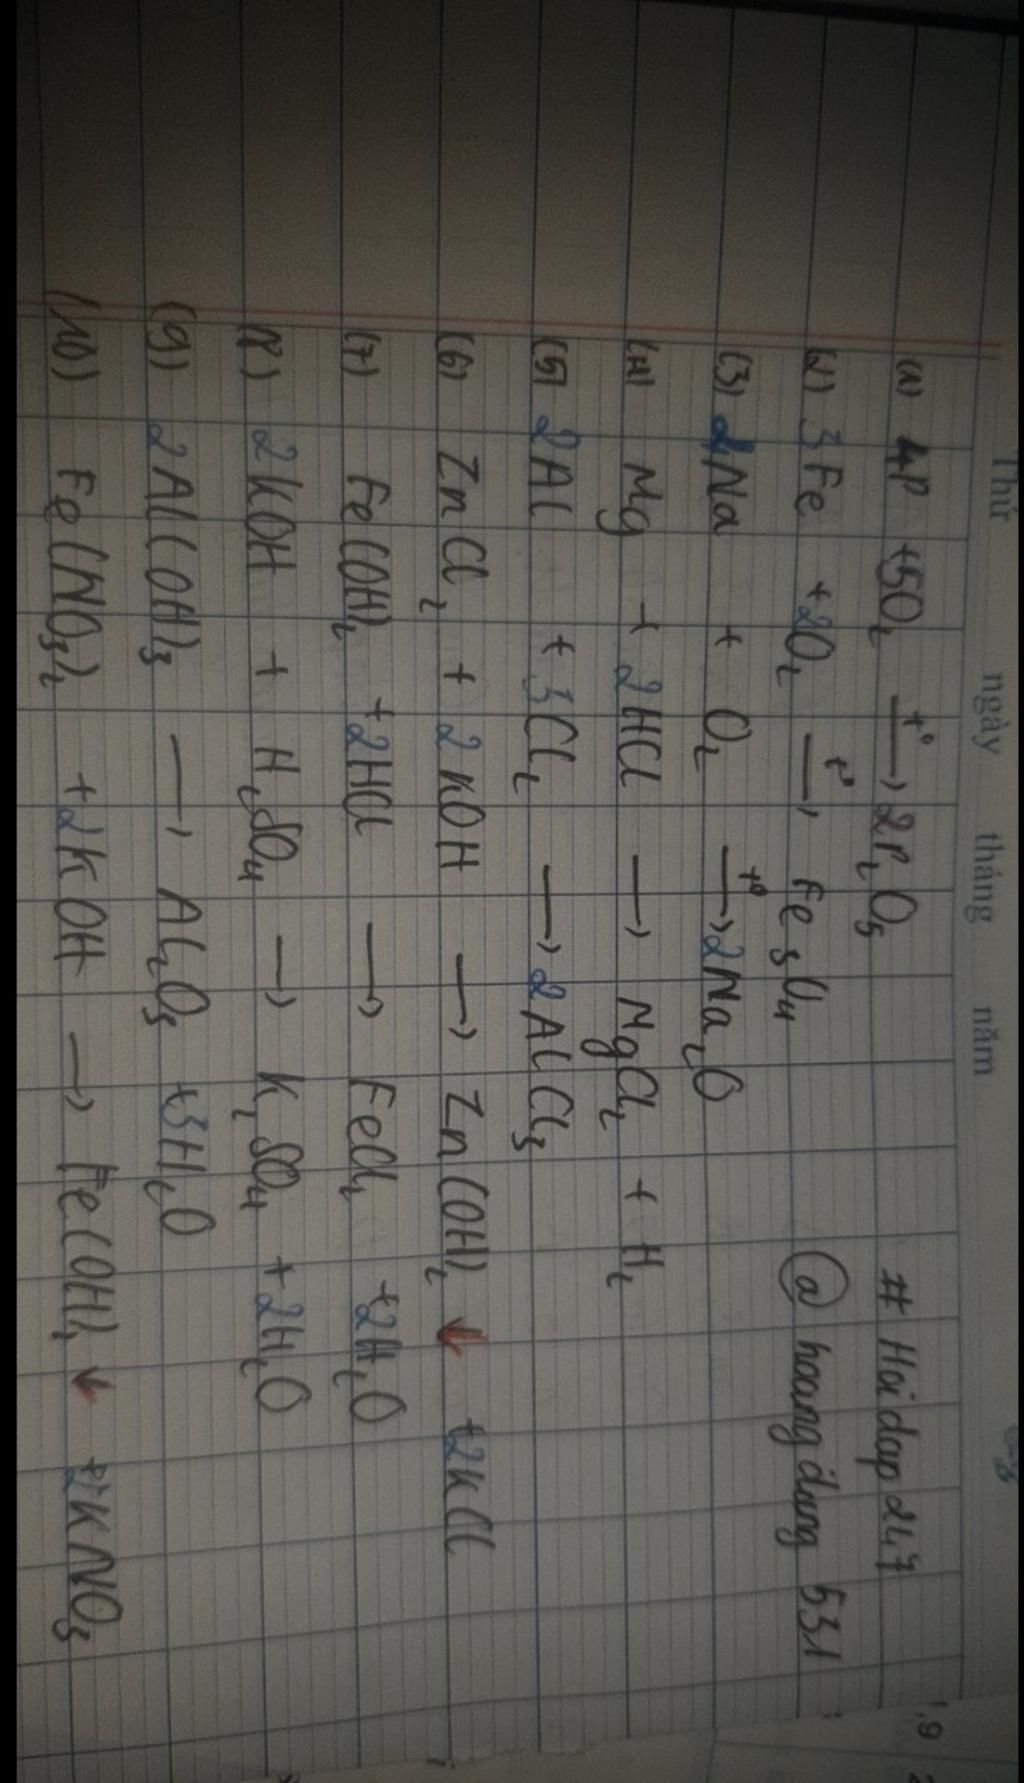 Thứ ngày tháng năm
(1) 4P + 5O₂ —t°→ 2P₂O₅ # Hoidap247
(2) 3Fe + 2O₂ —t°→ Fe₃O₄ @ hoangdung 531
(3) 4Na + O₂ —t°→ 2Na₂O
(4) Mg + 2HCl → MgCl₂ + H₂
(5) 2Al + 3Cl₂ → 2AlCl₃
(6) ZnCl₂ + 2KOH → Zn(OH)₂ ↓ + 2KCl
(7) Fe(OH)₂ + 2HCl → FeCl₂ + 2H₂O
(8) 2KOH + H₂SO₄ → K₂SO₄ + 2H₂O
(9) 2Al(OH)₃ → Al₂O₃ + 3H₂O
(10) Fe(NO₃)₂ + 2KOH → Fe(OH)₂ ↓ + 2KNO₃